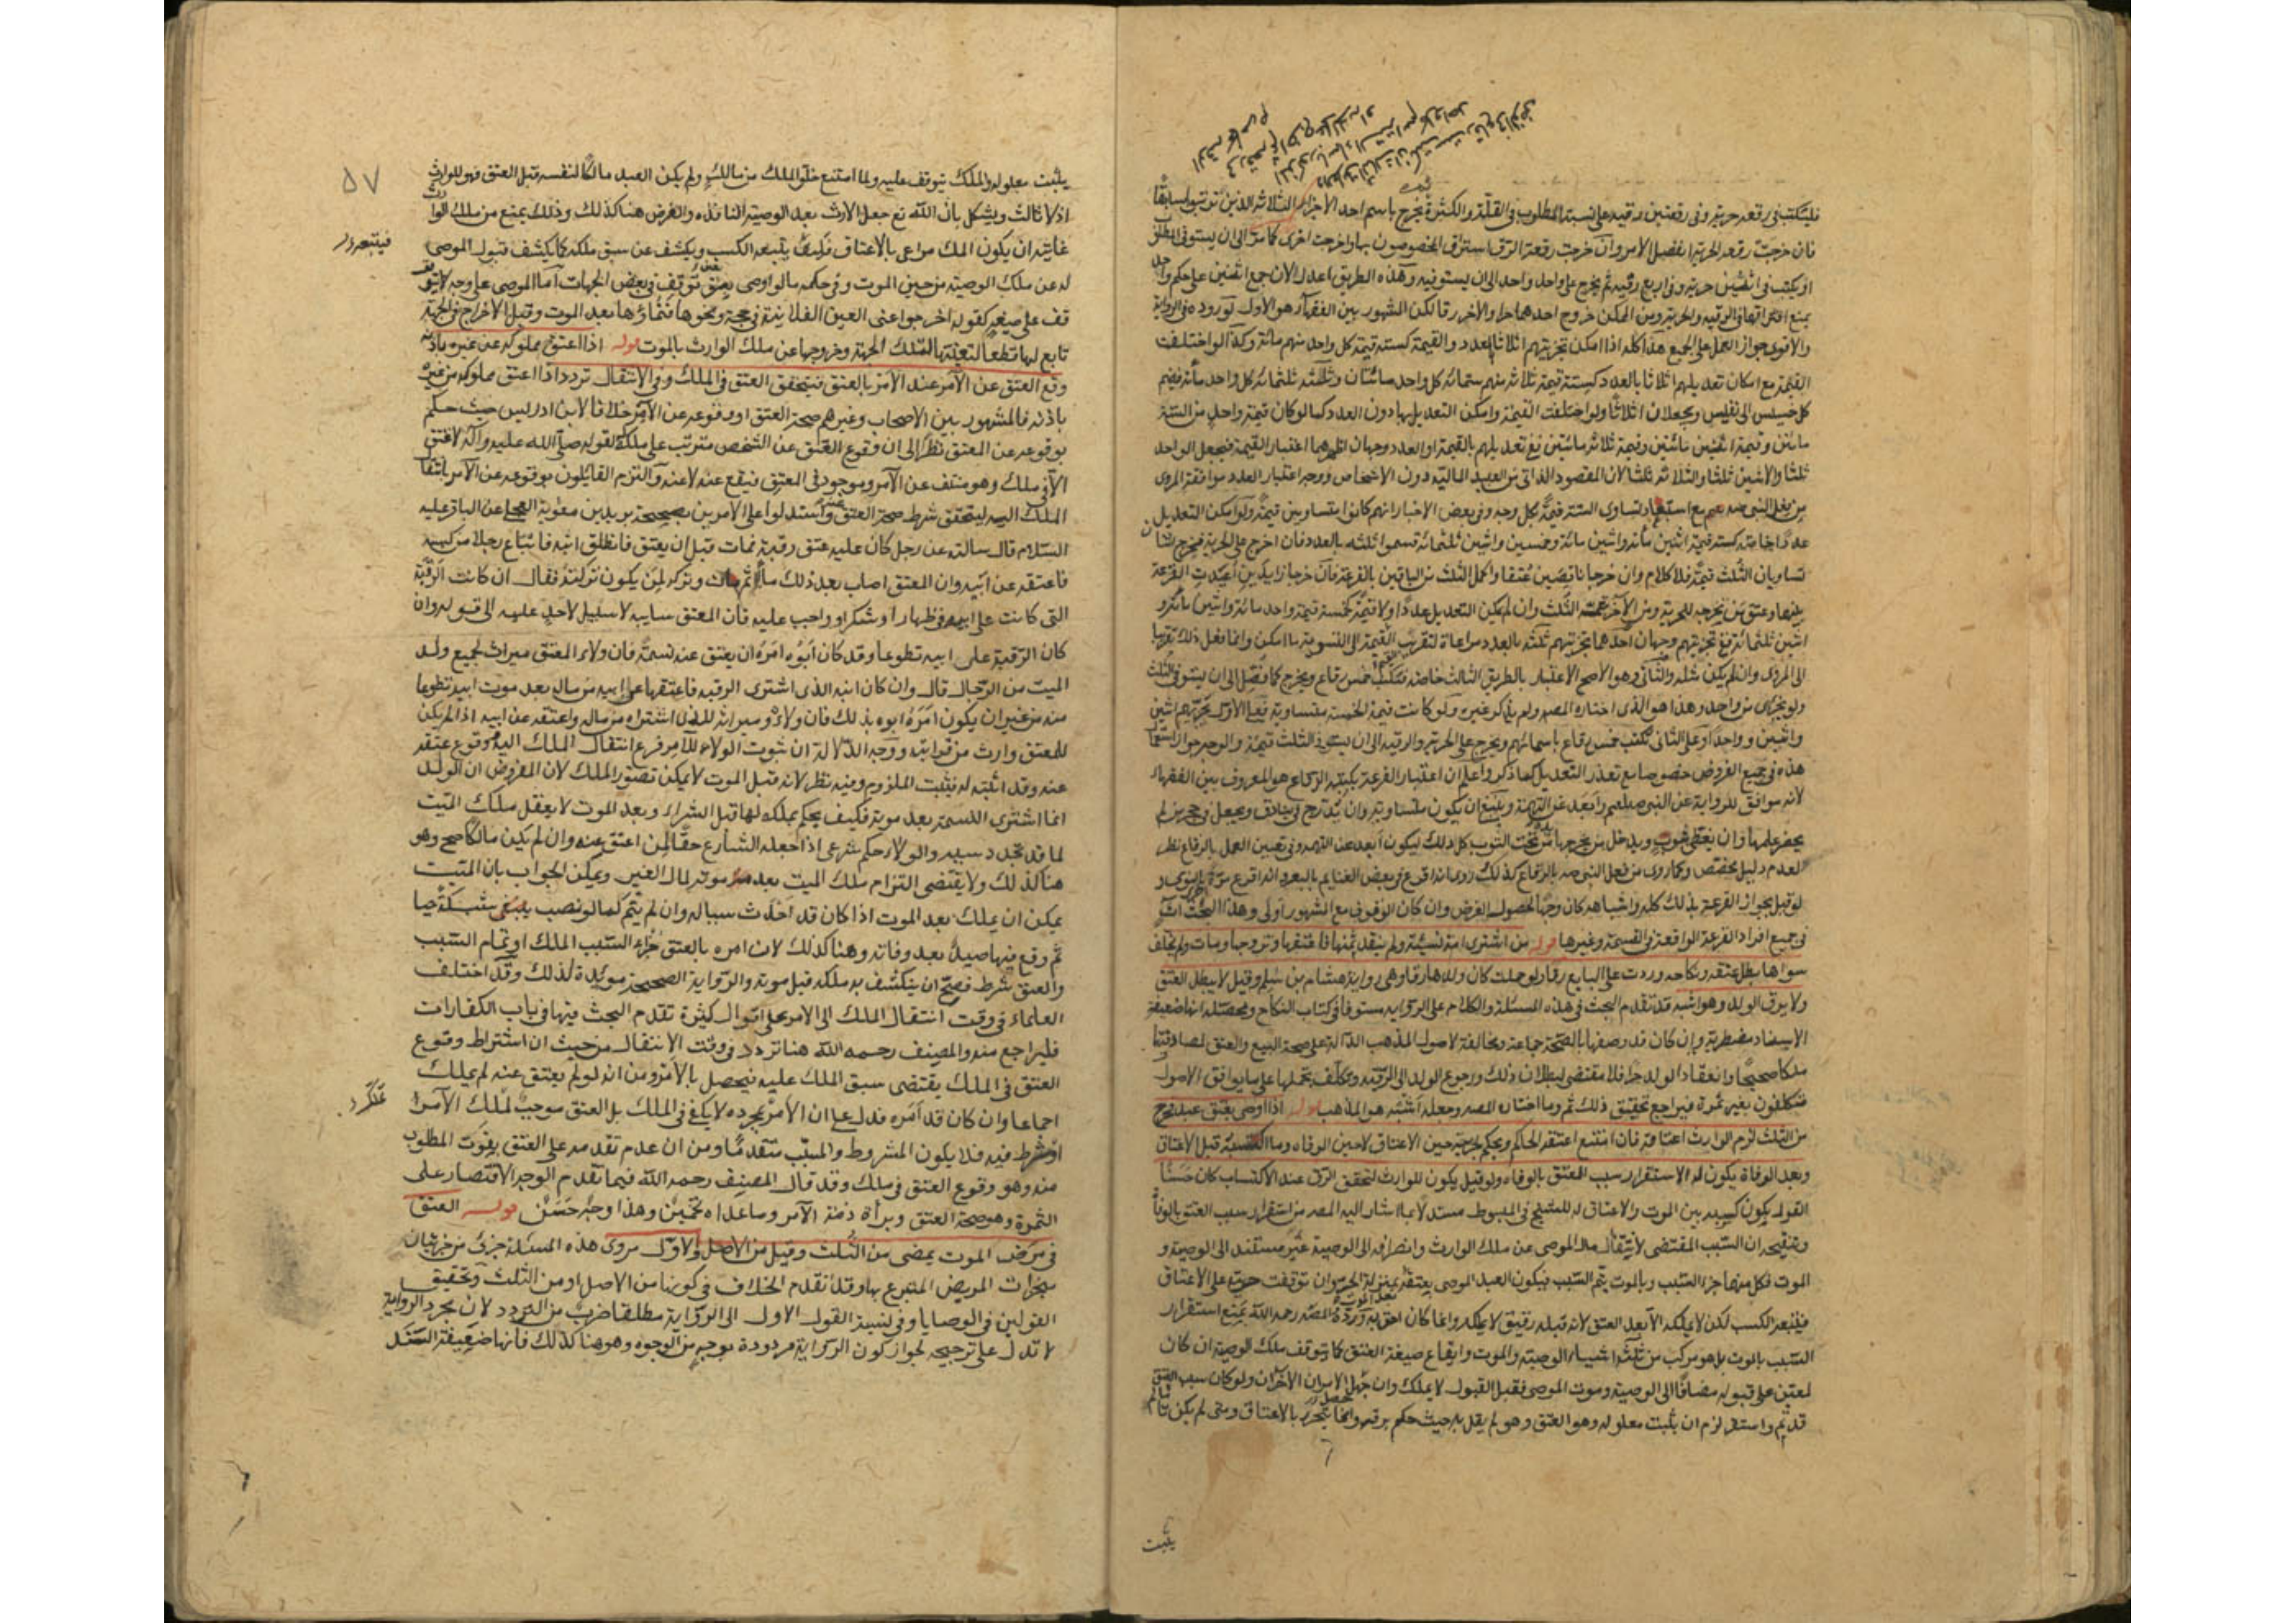 فليكتب في رقعه حريه وفي رقعتين رقيه على نسبة المطلوب في القلة والكثرة يخرج باسم احد الاجزاء الثلاثه الذين ترتبوا سابقا
فان خرجت رقعه الحرية انفصل الامر وان خرجت رقعة الرق استرق المخصوصون بها واخرجت اخرى كما مر الى ان يستوفى المطلوب
او يكتب في اثنتين حرية وفي اربع رقيه ثم يخرج على واحد واحد الى ان يستوفيه وهذه الطريق اعدل لان جمع اثنين على حكم واحد
يمنع افتراقهما في الرقيه والحرية ومن الممكن خروج احدهما حرا والاخر رقا لكن المشهور بين الفقهاء هو الاول لوروده في الرواية
والاقوى جواز العمل على الجميع هذا كله اذا امكن تجزيتهم اثلاثا بالعدد والقيمة كستة قيمة كل واحد منهم مائة وكذا لو اختلفت
القيمة مع امكان تعديلهم اثلاثا بالعدد كستة قيمة ثلاثة منهم ستمائة كل واحد مائتان وثلاثة ثلثمائة كل واحد مائة فيضم
كل خسيس الى نفيس ويجعلان اثلاثا ولو اختلفت القيمة وامكن التعديل بها دون العدد كما لو كان قيمة واحد من الستة
مائتين وقيمة اثنين مائتين وقيمة ثلاثة مائتين ففي تعديلهم بالقيمة او العدد وجهان اظهرهما اعتبار القيمة فيجعل الواحد
ثلثا والاثنين ثلثا والثلاثة ثلثا لان المقصود الذاتي من العبيد المالية دون الاشخاص ووجه اعتبار العدد موافقة المروى
من فعل النبي صلعم مع استبعاد تساوى الستة قيمة بكل وجه وفي بعض الاخبار انهم كانوا متساوين قيمة ولو امكن التعديل
عددا خاصة كستة قيمة اثنين مائة واثنين مائة وخمسين واثنين ثلثمائة قسموا ثلثة بالعدد فان اخرج على الحرية فخرج اثنان
تساويان الثلث قيمة فلا كلام وان خرجا ناقصين عتقا واكمل الثلث من الباقين بالقرعة فان خرجا زايدين اعيدت القرعة
بينهما وعتق من يخرجه للحرية ومن الآخر تتمة الثلث وان لم يمكن التعديل عددا ولا قيمة كخمسة قيمة واحد مائة واثنين مائة و
اثنين ثلثمائة ففي تجزيتهم وجهان احدهما تجزيتهم ثلثة بالعدد مراعاة لتقريب القيمة الى التسوية ما امكن وانما فعل ذلك تقريبا
الى المروى وان لم يكن مثله والثاني وهو الاصح الاعتبار بالطريق الثالث خاصة فتكتب خمس رقاع ويخرج كما فصل الى ان يستوفى الثلث
ولو بجزء من واحد وهذا هو الذى اختاره المصه ولم يذكر غيره ولو كانت قيمة الخمسة متساوية فعلى الاول تجزيتهم اثنين
واثنين وواحدا وعلى الثاني تكتب خمس رقاع باسمائهم ويخرج على الحرية والرقيه الى ان يستوفى الثلث قيمة والوجه جواز استعمال
هذه في جميع الفروض خصوصا مع تعذر التعديل كما ذكر واعلم ان اعتبار القرعة بكتبة الرقاع هو المعروف بين الفقهاء
لانه موافق للرواية عن النبي صلعم وابعد عن التهمة وينبغى ان يكون متساوية وان تدرج في بنادق ويجعل في حجر من لم
يحضر عليها وان يغطى بثوب ويدخل من يخرجها يده تحت الثوب كل ذلك ليكون ابعد عن التهمة وفي تعيين العمل بالرقاع نظر
لعدم دليل يخصص وكما روى من فعل النبي صه بالرقاع كذلك روى انه اقرع في بعض الغنايم بالبعرة وانه اقرع مرة بالنوى و
لو قيل بجواز القرعة بذلك كله واشباهه كان وجها لحصول الغرض وان كان الوقوف مع المشهور اولى وهذا البحث آت
في جميع افراد القرعة الواقعة في القسمة وغيرها قوله من اشترى امة نسيئة ولم ينقد ثمنها فاعتقها وتزوجها ومات ولم يخلف
سواها بطل عتقه ونكاحه وردت على البايع رقا ولو حملت كان ولدها رقا وهى رواية هشام بن سالم وقيل لا يبطل العتق
ولا يرق الولد وهو اشبه قد تقدم البحث في هذه المسئلة والكلام على الرواية مستوفا في كتاب النكاح ومحصله انها ضعيفة
الاسناد مضطربة وان كان قد وصفها بالصحة جماعة ومخالفة لاصول المذهب الدالة على صحة البيع والعتق لمصادفتهما
ملكا صحيحا وانعقاد الولد حرا فلا مقتضى لبطلان ذلك ورجوع الولد الى الرقية وتكلف بحملها على ما يوافق الاصول
متكلفون بغير ثمرة فيراجع تحقيق ذلك ثم وما اختاره المصه وجعله اشبه هو المذهب قوله اذا اوصى بعتق عبد فخرج
من الثلث لزم الوارث اعتاقه فان امتنع اعتقه الحاكم ويحكم بحريته حين الاعتاق لا حين الوفاة وما اكتسبه قبل الاعتاق
وبعد الوفاة يكون له لاستقرار سبب العتق بالوفاه ولو قيل يكون للوارث لتحقق الرق عند الاكتساب كان حسنا
القول بكون كسبه بين الموت والاعتاق له للشيخ في المبسوط مستدلا بما اشار اليه المصه من استقرار سبب العتق بالوفاة
وتنقيحه ان السبب المقتضى لانتقال مال الموصى عن ملك الوارث وانصرافه الى الوصية غير مستند الى الوصية و
الموت فكل منهما جزء السبب وبالموت يتم السبب فيكون العبد الموصى بعتقه بمنزلة الحر وان توقفت حريته على الاعتاق
فيتبعه الكسب لكن لا يملكه الا بعد العتق لانه قبله رقيق لا يملك وانما كان احق به ورده المصه رحمه الله بمنع استقرار
السبب بالموت بل هو مركب من ثلثة اشياء الوصية والموت وايقاع صيغة العتق كما يتوقف ملك الوصية ان كان
لمعين على قبوله مضافا الى الوصية وموت الموصى فقبل القبول لا يملك وان حصل الامران الآخران ولو كان سبب العتق
قد تم واستقر لزم ان يثبت معلوله وهو العتق وهو لم يقل به حيث حكم برقه وانما يتحرر بالاعتاق ومتى لم يكن تاما لم
يثبت
٥٧
يثبت معلوله والملك يتوقف عليه ولما امتنع خلو الملك من مالك ولم يكن العبد مالكا لنفسه قبل العتق فهو للوارث
اذ لا ثالث ويشكل بان الله تع جعل الارث بعد الوصية النافذه والفرض هنا كذلك وذلك يمنع من ملك الوارث
غايته ان يكون الملك مراعى بالاعتاق فيتبعه الكسب ويكشف عن سبق ملكه كما يكشف قبول الموصى
له عن ملك الوصية من حين الموت وفي حكمه ما لو اوصى بعتق توقف في بعض الجهات اما الموصى على وجه لا يتو
قف على صيغة كقوله اخرجوا عنى العين الفلانية في حجة ونحوها فنماؤها بعد الموت وقبل الاخراج في الجهة
تابع لها قطعا لتعينها لتلك الجهة وخروجها عن ملك الوارث بالموت قوله اذا اعتق مملوكه عن غيره باذنه
وقع العتق عن الآمر عند الامر بالعتق فيتحقق العتق في الملك وفي الانتقال تردد اذا اعتق مملوكه عن غيره
باذنه فالمشهور بين الاصحاب وغيرهم صحة العتق ووقوعه عن الآمر خلافا لابن ادريس حيث حكم
بوقوعه عن المعتق نظرا الى ان وقوع العتق عن الشخص مترتب على ملكه لقوله صلى الله عليه وآله لا عتق
الا في ملك وهو منتف عن الآمر وموجود في المعتق فيقع عنه لا عنه والتزم القايلون بوقوعه عن الآمر بانتقال
الملك اليه ليتحقق شرط صحة العتق عنه واستدلوا على الامرين بصحيحة بريد بن معوية العجلى عن الباقر عليه
السلام قال سالته عن رجل كان عليه عتق رقبة فمات قبل ان يعتق فانطلق ابنه فابتاع رجلا من كيسه
فاعتقه عن ابيه وان المعتق اصاب بعد ذلك مالا ثم مات وتركه لمن يكون تركته فقال ان كانت الرقبة
التى كانت على ابيه في ظهار او شكر او واجب عليه فان المعتق سايبه لا سبيل لاحد عليه الى قوله وان
كان الرقبة على ابيه تطوعا وقد كان ابوه امره ان يعتق عنه نسمة فان ولاء المعتق ميراث لجميع ولد
الميت من الرجال قال وان كان ابنه الذى اشترى الرقبه فاعتقها عن ابيه من ماله بعد موت ابيه تطوعا
منه من غير ان يكون امره ابوه بذلك فان ولاءه وميراثه للذى اشتراه من ماله واعتقه عن ابيه اذا لم يكن
للمعتق وارث من قرابته ووجه الدلالة ان ثبوت الولاء للآمر فرع انتقال الملك اليه ووقوع عتقه
عنه وقد اثبته له فيثبت الملزوم وفيه نظر لانه قبل الموت لا يمكن تصور الملك لان المفروض ان الولد
انما اشترى النسمة بعد موته فكيف يحكم بملكه لها قبل الشراء وبعد الموت لا يعقل ملك الميت
لما قد تجدد سببه والولاء حكم شرعى اذا جعله الشارع حقا لمن اعتق عنه وان لم يكن مالكا صح وهو
هنا كذلك ولا يقتضى التزام ملك الميت بعد موته لمال الغير ويمكن الجواب بان الميت
يمكن ان يملك بعد الموت اذا كان قد احدث سبباله وان لم يتم كما لو نصب شبكة حيا
ثم وقع فيها صيد بعد وفاته وهنا كذلك لان امره بالعتق جزء السبب الملك او تمام السبب
والعتق شرط فصح ان ينكشف به ملكه قبل موته والرواية الصحيحة مويدة لذلك وقد اختلف
العلماء في وقت انتقال الملك الى الآمر على اقوال كثيرة تقدم البحث فيها في باب الكفارات
فليراجع منه والمصنف رحمه الله هنا تردد في وقت الانتقال من حيث ان اشتراط وقوع
العتق في الملك يقتضى سبق الملك عليه فيحصل بالامر ومن انه لو لم يعتق عنه لم يملك
اجماعا وان كان قد امره فدل على ان الامر بمجرده لا يكفى في الملك بل العتق موجب لملك الآمر
او شرط فيه فلا يكون المشروط والمسبب متقدما ومن ان عدم تقدمه على العتق يفوت المطلوب
منه وهو وقوع العتق في ملك وقد قال المصنف رحمه الله فيما تقدم الوجه الاقتصار على
الثمرة وهو صحة العتق وبرأة ذمة الآمر وما عداه تخمين وهذا وجه حسن قوله العتق
في مرض الموت يمضى من الثلث وقيل من الاصل والاول مروى هذه المسئلة جزئى من جزئيات
منجزات المريض المتبرع بها وقد تقدم الخلاف في كونها من الاصل او من الثلث وتحقيق
القولين في الوصايا وفي نسبة القول الاول الى الرواية مطلقا ضرب من التردد لان مجرد الرواية
لا تدل على ترجيحه لجواز كون الرواية مردودة بوجه من الوجوه وهو هنا كذلك فانها ضعيفة السند